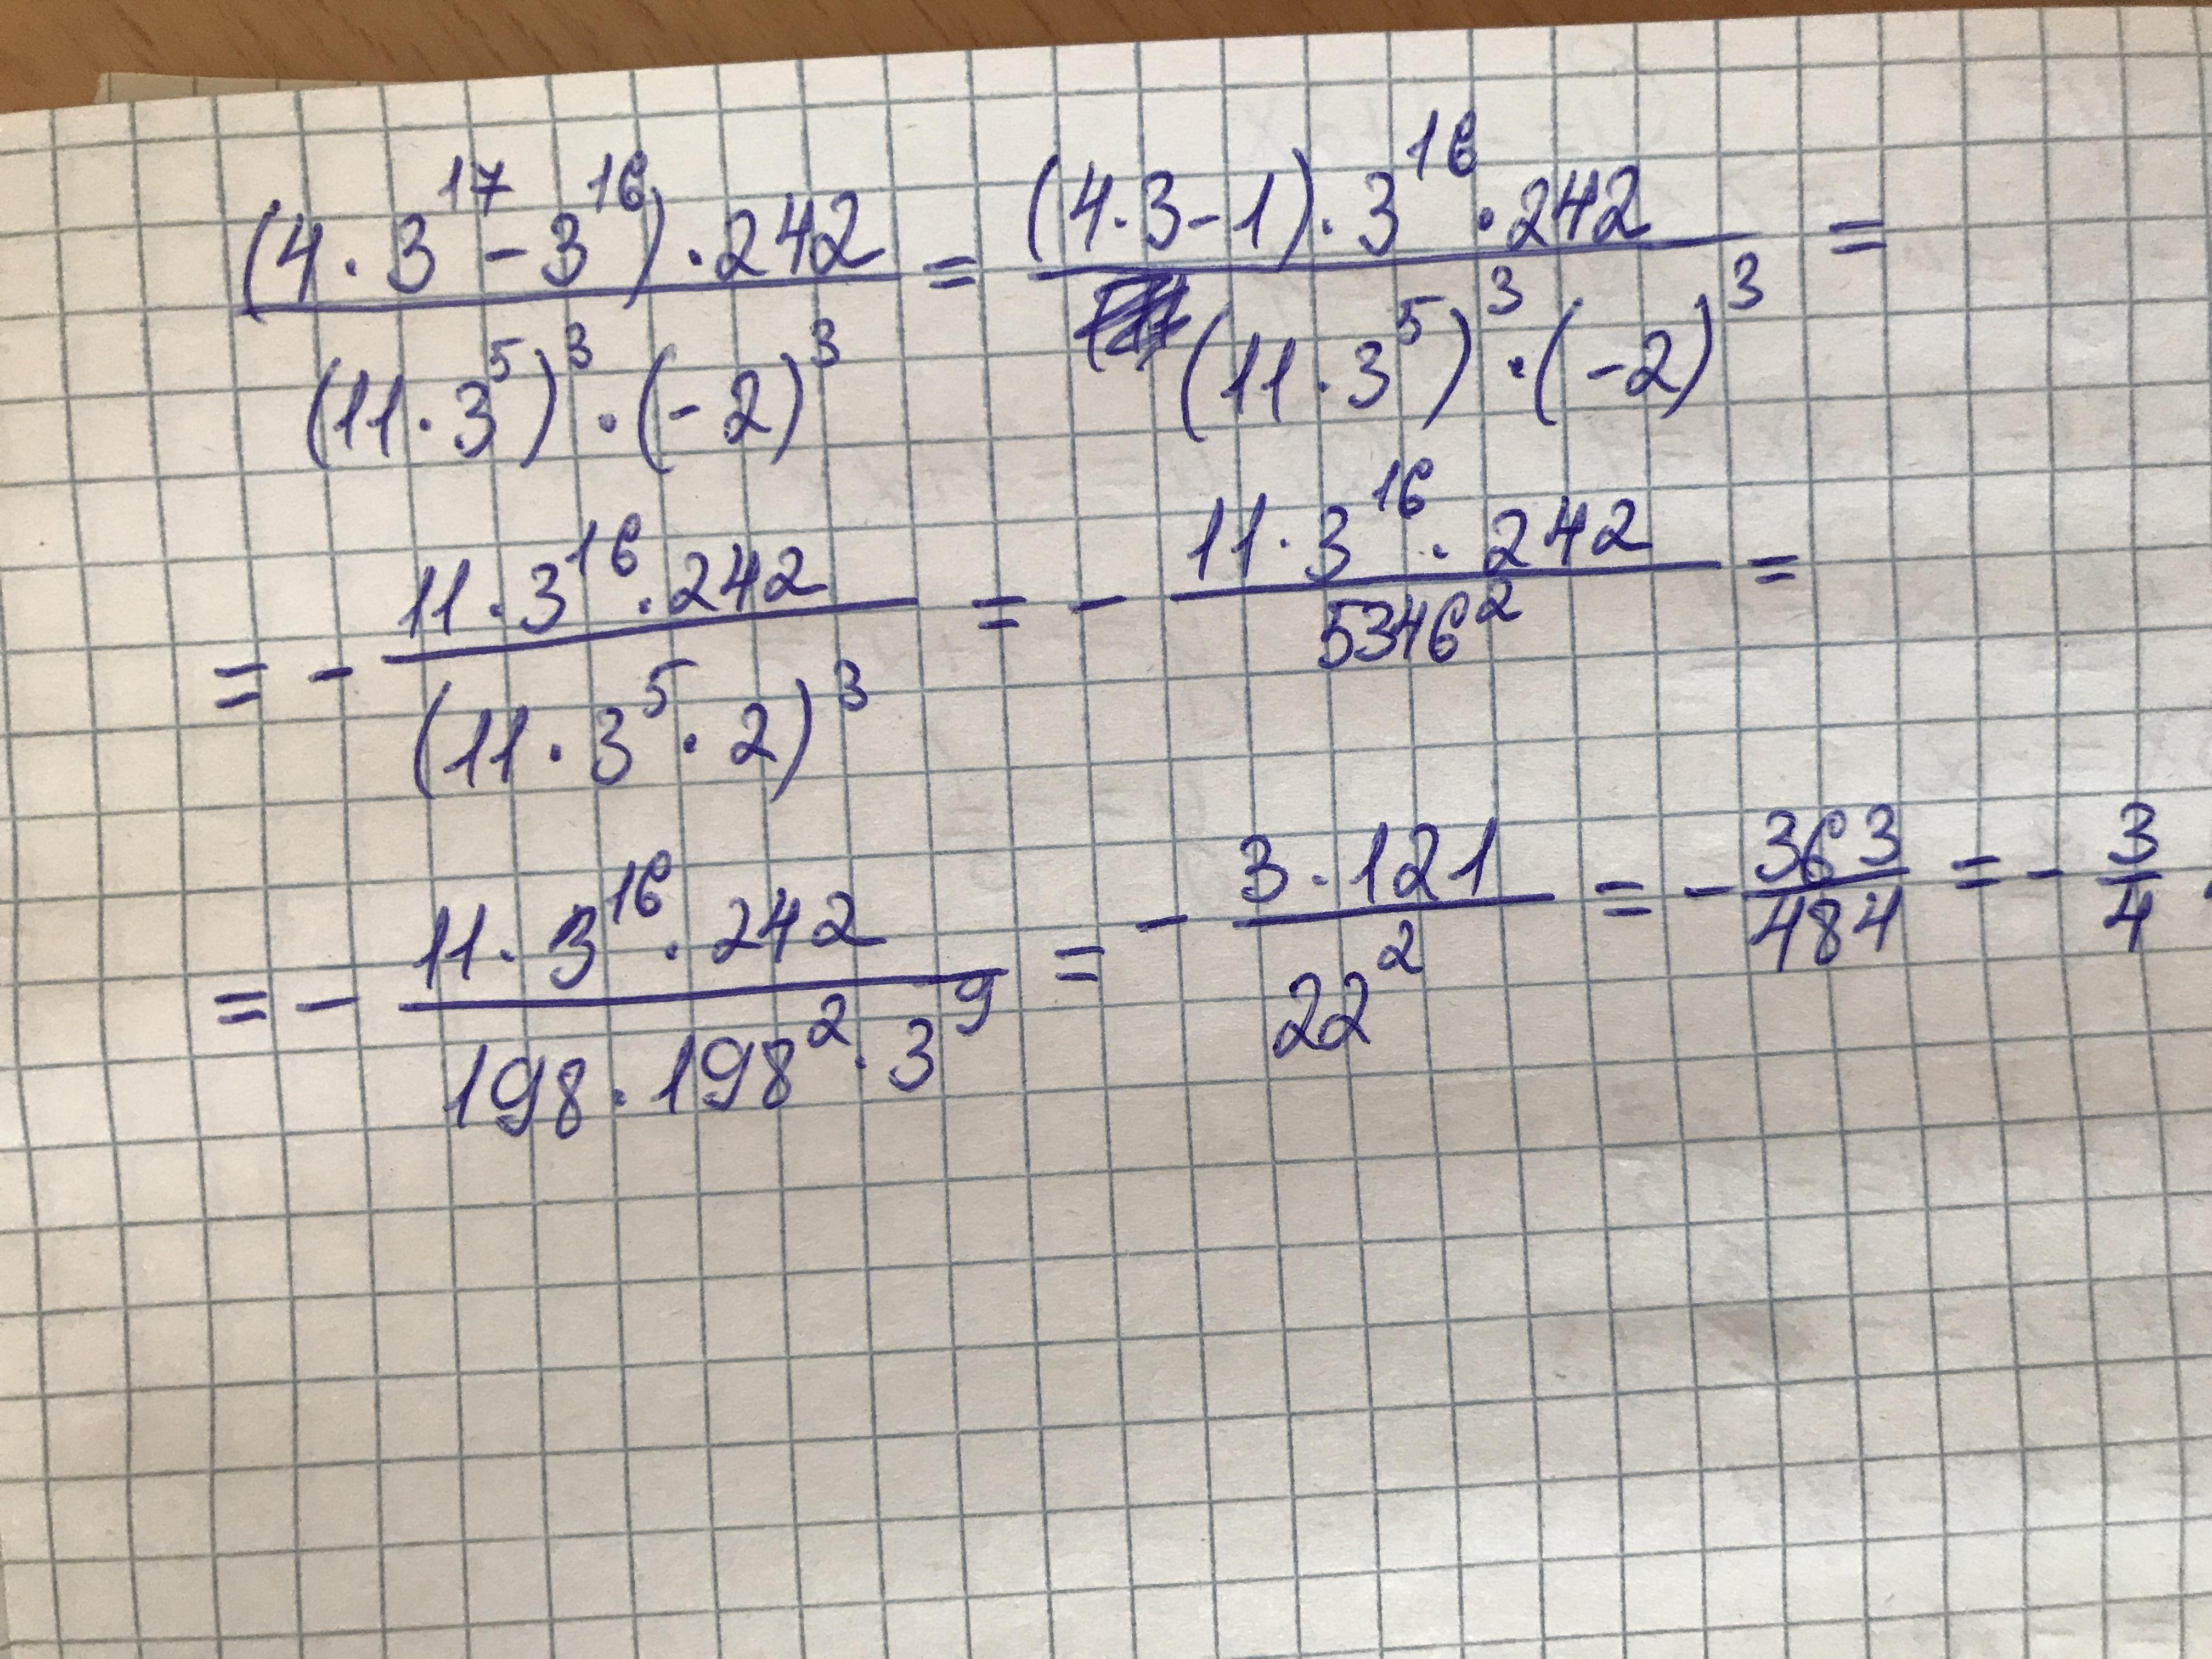 (4·3¹⁷-3¹⁶)·242/(11·3⁵)³·(-2)³ = (4·3-1)·3¹⁶·242/(11·3⁵)³·(-2)³ =
= - 11·3¹⁶·242/(11·3⁵·2)³ = - 11·3¹⁶·242/5346² =
= - 11·3¹⁶·242/198·198²·3⁹ = - 3·121/22² = - 363/484 = - 3/4